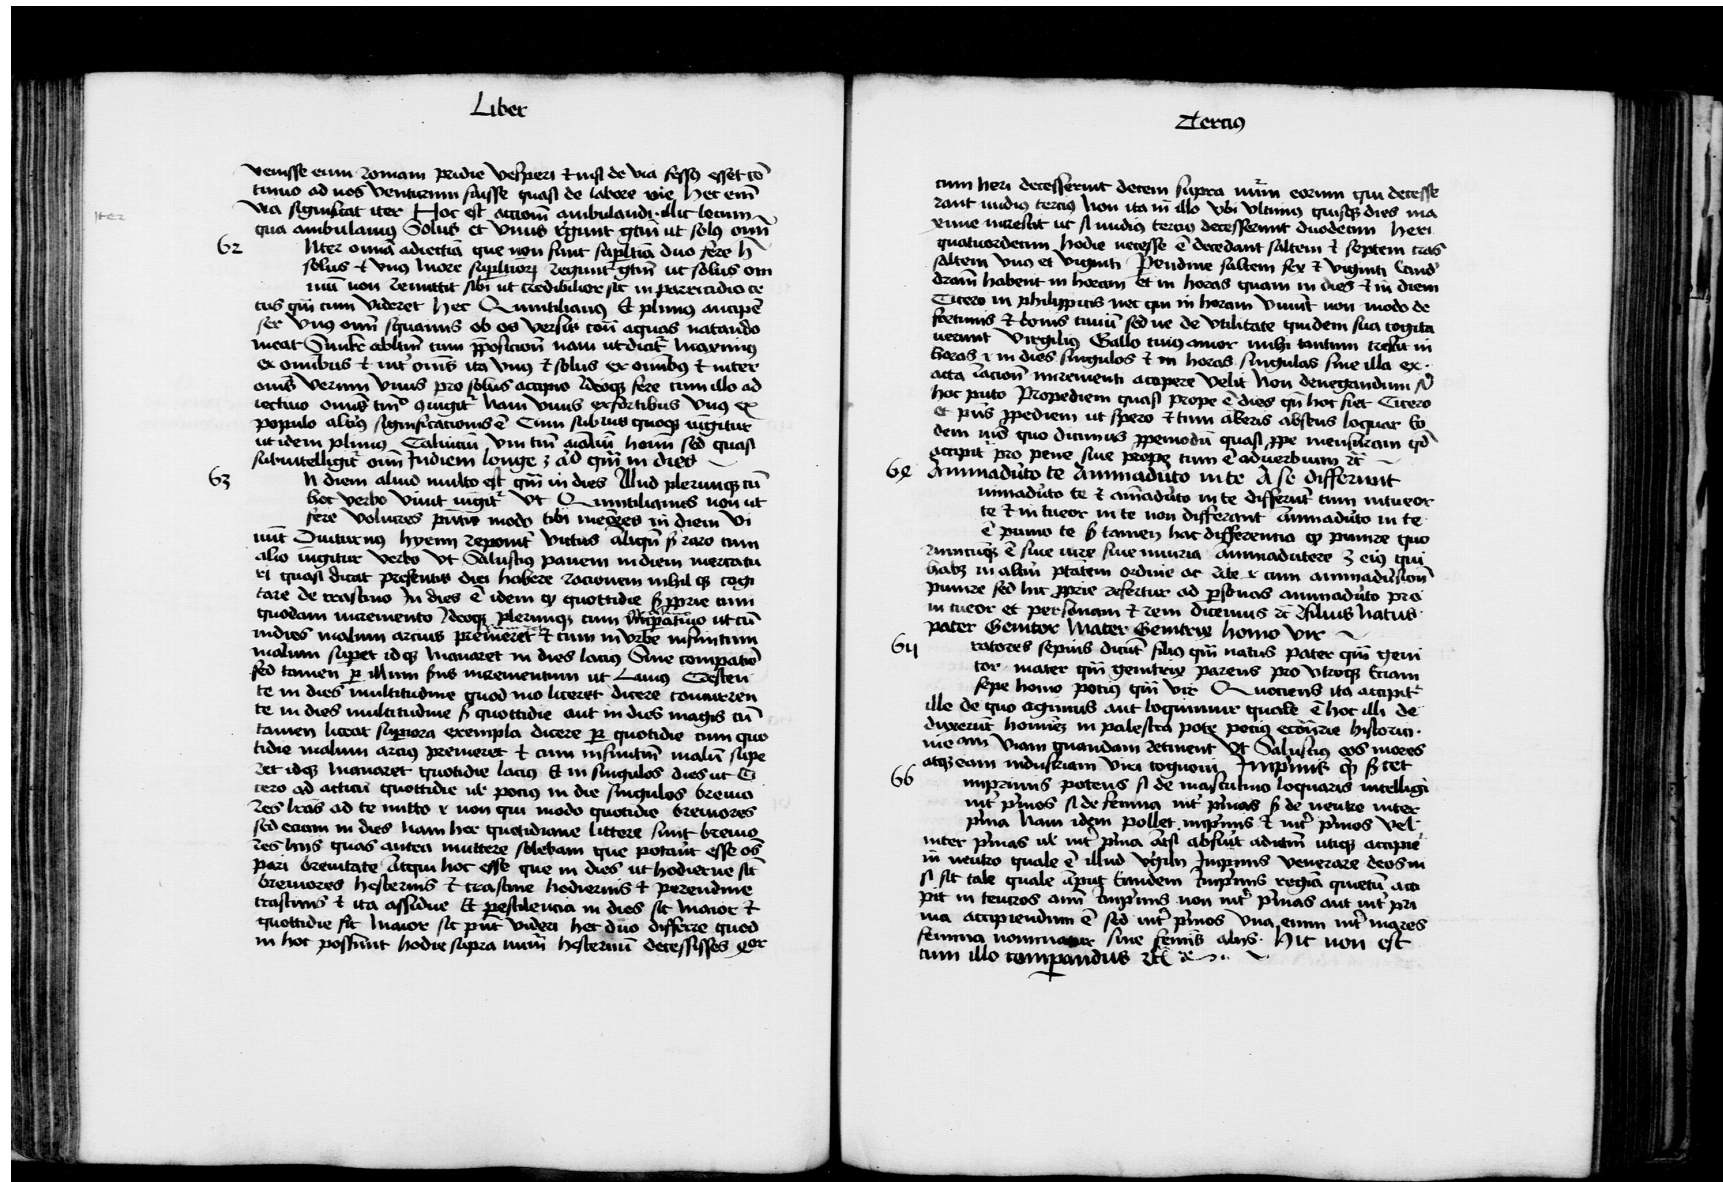 Liber
venisse eum romam pridie vesperi ⁊ nisi de via fessꝯ esset cō
tinuo ad nos venturum fuisse quasi de labore vie Hec em̄
via significat iter Hoc est actiom̄ ambulandi. illic locum
iter
qua ambulamꝯ Solus et Vnus rgunt gtm̄ ut solꝯ om̄
62
nter om̄ā adiectiā que non sunt suꝑltiā duo fere h̄
solus ⁊ vnꝯ more suꝑltiorꝝ regunt gtm̄ ut solus om
niū non remittit sibi ut credibilior sit in parricidio te
cum videret hec Quintilianꝯ Et plinius
ser vnꝯ om̄ squamis ob os versis aquas natando
meat Simlr̄ abltm̄ cum ꝓposiciōn nam ut dicitr̄ maximus
ex omnibus ⁊ int̄ om̄s ita vnꝯ ⁊ solus ex omnibꝯ ⁊ inter
om̄s verum vnus pro solus accipio Ideoqꝫ fere cum illo ad
iectivo om̄s Nam vnus ex fortibus vnꝯ ex
populo altiꝰ significacionis ē Cum subtus quoqꝫ iūgitur
ut idem plinius vni tm̄ hom̄ sed quasi
subintelligitr̄ om̄ Indiem longe ꝫ ad qm̄ in dies
63
N diem aliud multo est qm̄ in dies Illud plerumqꝫ cū
hoc verbo vivit iūgitr̄ Vt Quintilianus non ut
fere volucres modo tibi in diem vi
unt Diuturnꝯ hyemi reponit victus raro cum
alio iūgitur verbo Vt Salustiꝯ panem in diem mercatu
ri quasi dicat presentis diei habere racionem nihil qꝫ cogi
tare de crastino In dies ē idem qꝫ quottidie ꝓprie cum
quodam incremento Ideoqꝫ plerumqꝫ cum ut cū
indies malum arcius premeret ⁊ cum in vrbe infinitum
malum suꝑet idqꝫ manaret in dies lacius Sine
sed tamen ꝑ illum incrementum ut Livius Cresten
te in dies multitudine quod no liceret dicere concurren
te in dies multitudine quottidie aut in dies magis cū
tamen liceat suꝑiora exempla dicere ꝑ quotidie cum quo
tidie malum arciꝯ premeret ⁊ cum infinitm̄ malū supe
ret idqꝫ manaret quotidie lacius Et in singulos dies ut Ci
cero ad atticū quottidie ul potius in die singulos brevio
res lrās ad te mitto ⁊ non qui modo quotidie breviores
sed eciam in dies Nam hec quotidiane littere sunt brevio
res hijs quas antea mittere solebam que poterūt esse om̄s
pari brevitate Atqui hoc esse que in dies ut hodierne sīt
breviores hesternis ⁊ crastine hodiernis ⁊ perendine
crastinis ⁊ ita assidue Et pestilencia in dies sit maior ⁊
quottidie sit maior sic pn̄t videri hec duo differre quod
in hoc possumt hodie supra num̄ hesternū decessisses ꝗor
Tercius
cum heri decesserint decem supra num̄ eorum qui decesse
rant nudiꝯ terciꝯ Non ita in illo vbi vltimꝯ quisqꝫ dies ma
xime increscit ut si nudiꝯ terciꝯ decesserint duodecim heri
quatuordecim hodie necesse ē decedant saltem ⁊ septem cras
saltem vnꝯ et viginti Perendine saltem sex ⁊ viginti
habent in horam et in horas quam in dies ⁊ in diem
Cicero in philippicis nec qui in horam vivūt non modo de
fortunis ⁊ bonis civiū sed ne de vtilitate quidem sua cogita
verunt Virgilius Gallo cuius amor mihi tantum crescit in
horas ⁊ in dies singulos ⁊ in horas singulas sine illa ex.
acta racion̄ incrementi accipere velit Non denegandum
hoc puto Propediem quasi prope ē dies qn̄ hoc fiet Cicero
et pn̄s ꝓpediem ut spero ⁊ tum absens loquar Eo
dem mō quo dicimus ꝓpemodū quasi ꝓpe mensuram qd̄
accipitr̄ pro pene sive prope cum ē adverbium ⁊c̄
64
Animadv̄to te Animadv̄to in te A se differunt
nimadv̄to te ⁊ am̄adv̄to in te differūt cum intueor
te ⁊ intueor in te non differant Animadv̄to in te
ē punio te tamen hac differentia qꝫ punire quo
cumqꝫ ē sive iure sive iniuria Animadvertere ꝫ eiꝯ qui
habꝫ in altm̄ ptātem ordine ac rite ⁊ cum
punire sed hic ꝓprie refertur ad ꝑsonas animadv̄to pro
intueor et personam ⁊ rem dicimus ⁊c̄ Filius Natus
pater Genitor Mater Genitrix homo Vir
6ij
ratores sepius dicūt filiꝯ qm̄ natus pater qm̄ geni
tor. mater qm̄ genitrix parens pro vtroqꝫ Eciam
sepe homo pociꝯ qm̄ vir Quociens ita accipitr̄
ille de quo agimus aut loquimur quale ē hoc illi de
duxerūt homiēs in palestra pociꝯ Historici
viam quandam retinent Vt Salustius eos mores
atqꝫ eam industriam viri cognovi Imprimis
66
imprimis potens si de masculino loquaris intelligi
int̄ p̄mos si de femina int̄ p̄mas de neutro inter
p̄ma Nam idem pollet imp̄mis ⁊ int̄ p̄mos vel.
inter p̄mas ul int̄ p̄ma absfuīt utiqꝫ accipie
in neutro quale ē illud v̄gilij Imp̄mis venerare deos in
si sit tale quale Eundem Imp̄mis regīa quietū acci
pit in teucros am̄ Imp̄mis non int̄ p̄mas aut int̄ pri
ma accipiendum ē sed int̄ p̄mos Vna enim int̄ mares
femina nominatur sine feminis alijs. Hic non est
cum illo comꝑandus ⁊c̄